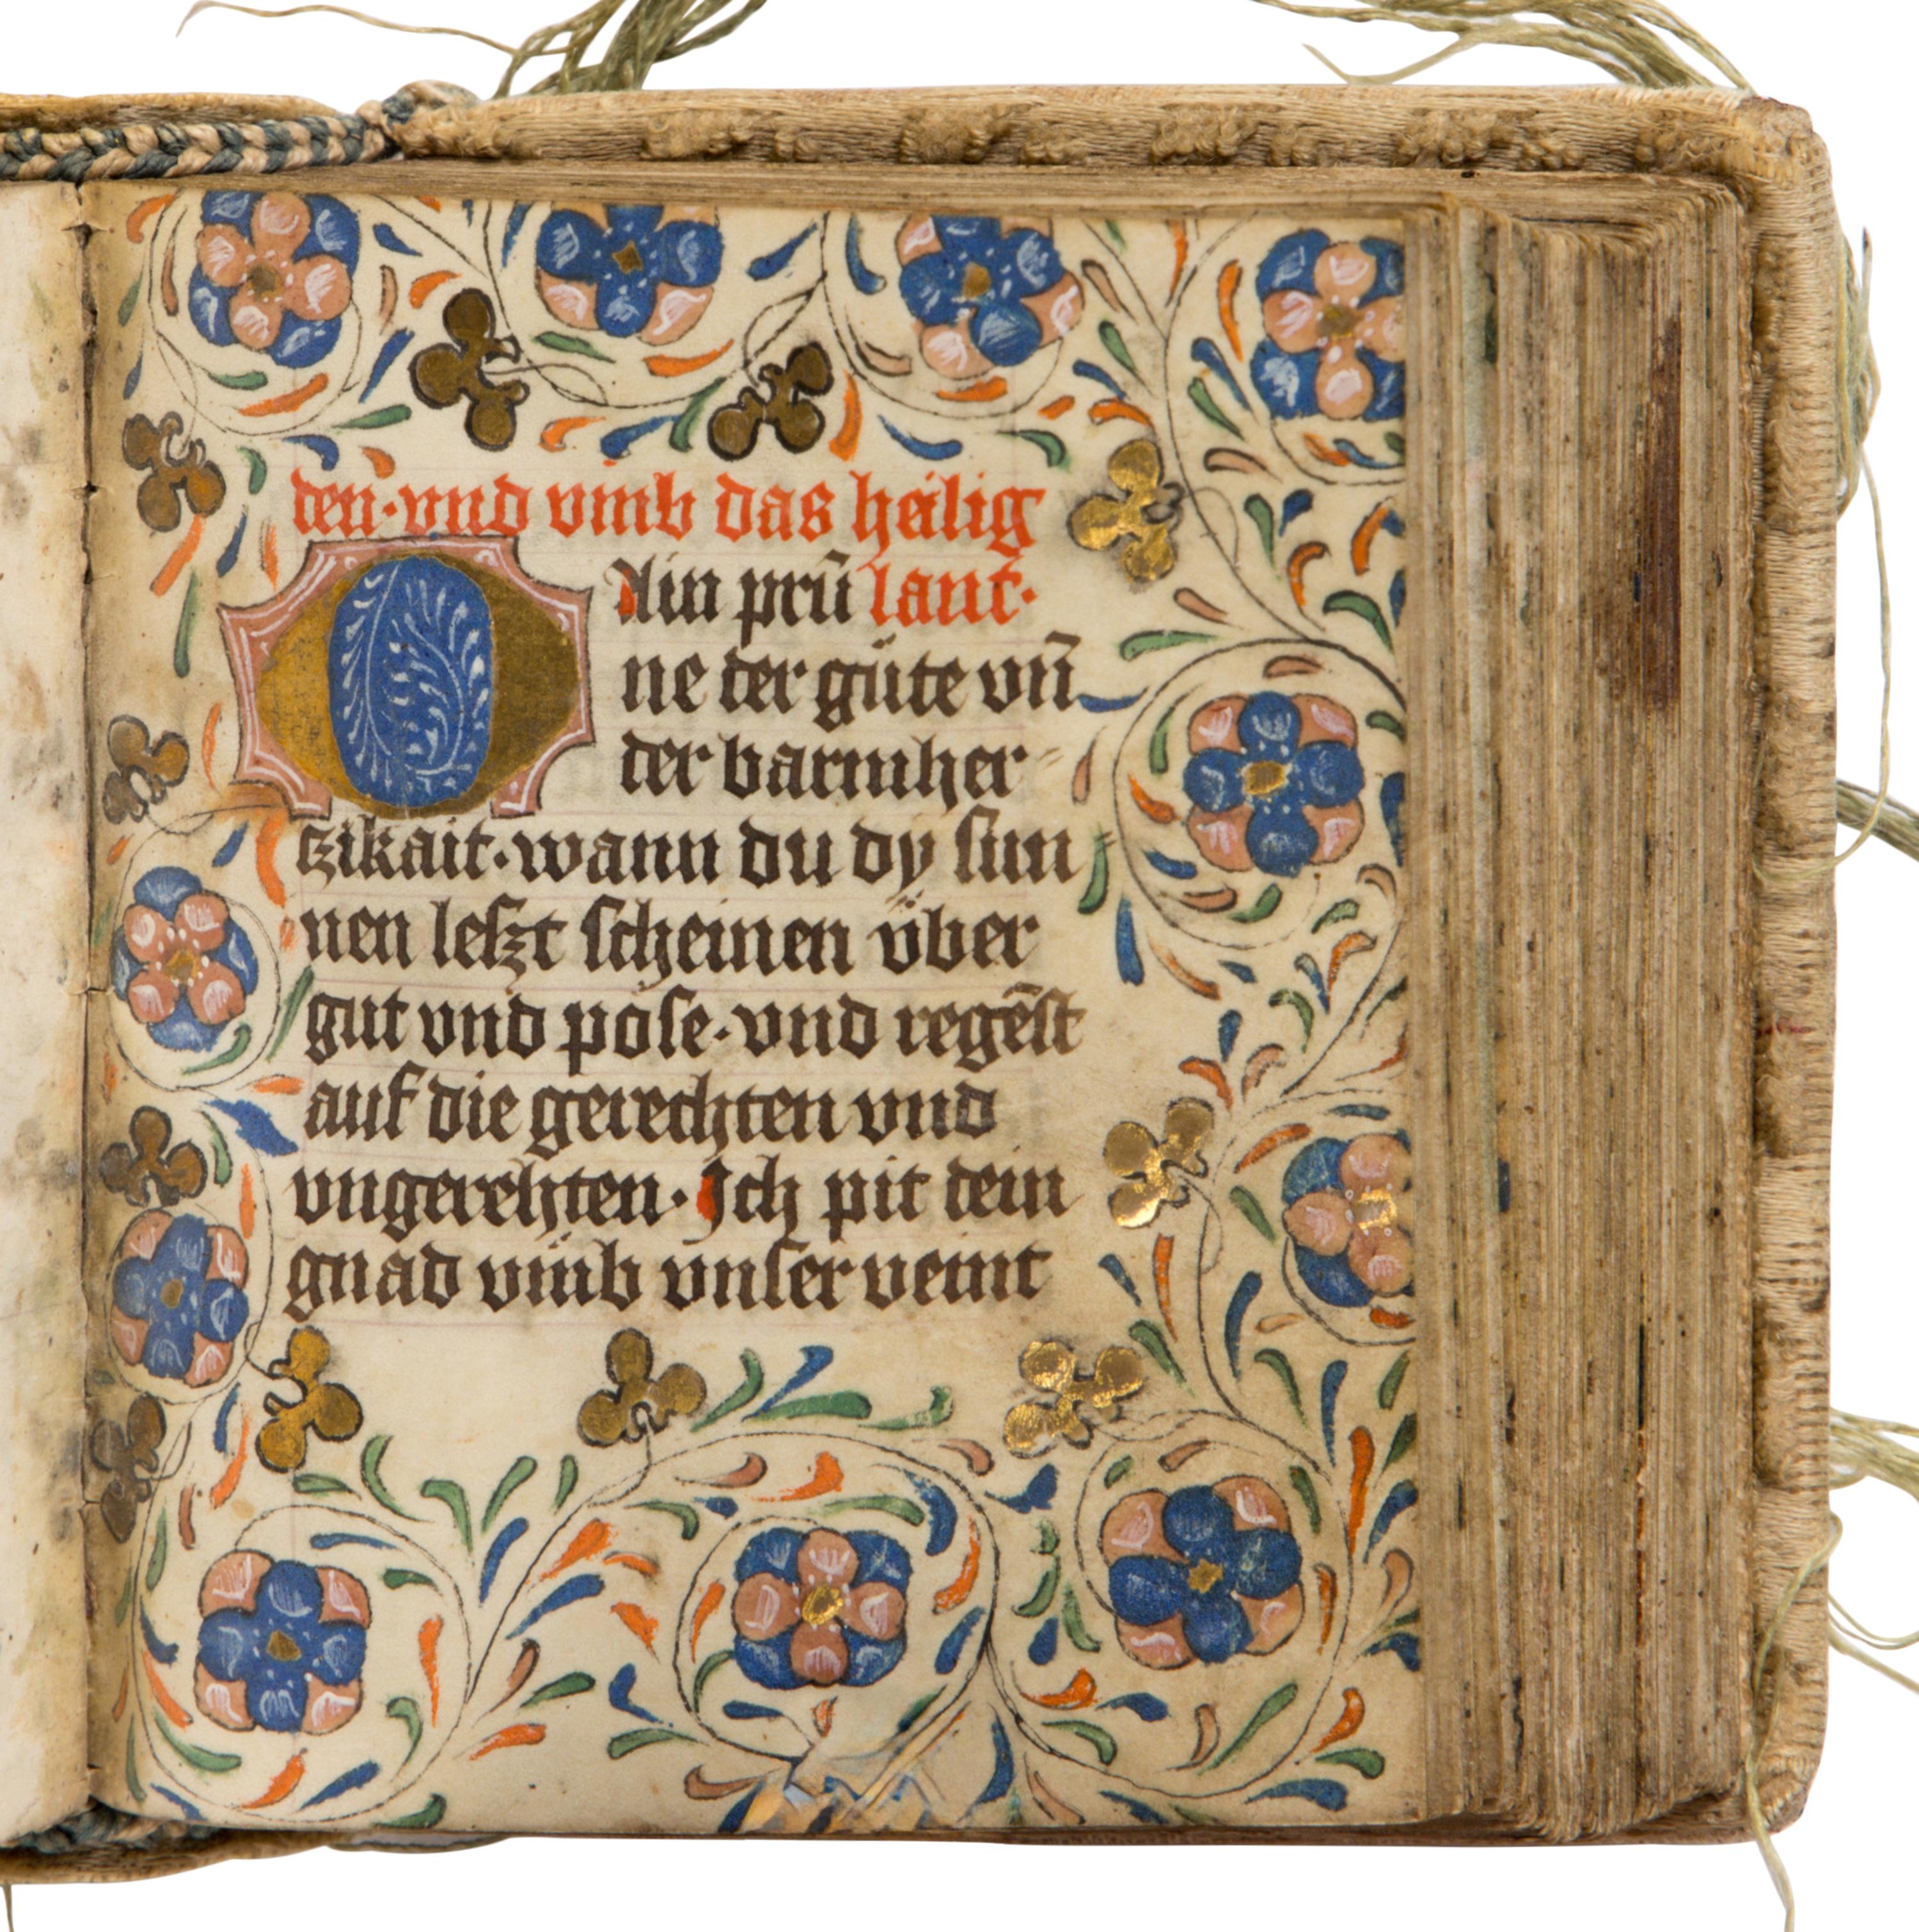 den·vnd vmb das heilig
O Ain prũ lant·
ne der gúte vñ
der barmher
tzikait·wann du dy sun
nen leszt scheinen v̈ber
gut vnd pöse·vnd regẽst
auf die gerechten vnd
vngerehten·Ich pit dein
gnad vmb vnser veint